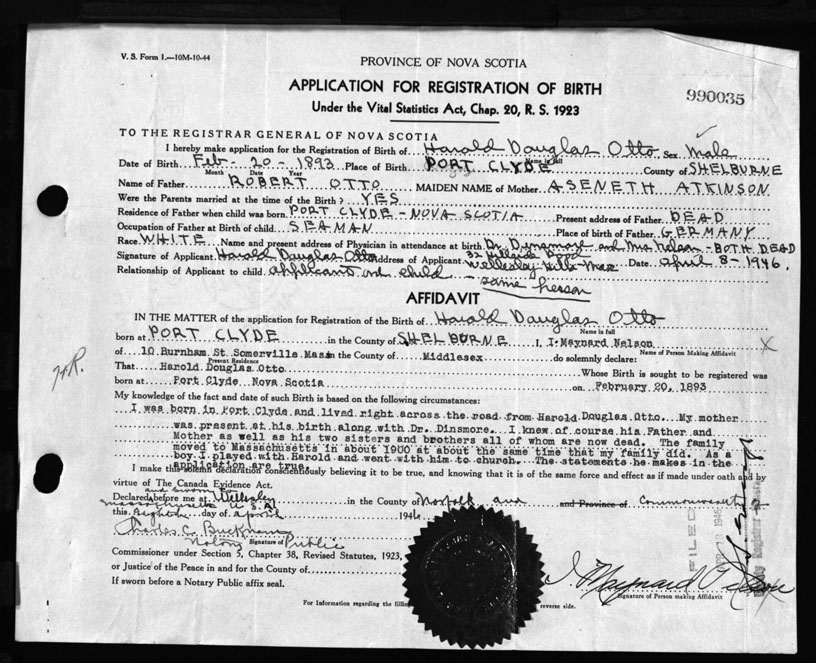 V. S. Form 1.—10M-10-44
PROVINCE OF NOVA SCOTIA
APPLICATION FOR REGISTRATION OF BIRTH
990035
Under the Vital Statistics Act, Chap. 20, R. S. 1923
TO THE REGISTRAR GENERAL OF NOVA SCOTIA
I hereby make application for the Registration of Birth of Harold Douglas Otto Sex Male
Name in full
Date of Birth Feb - 20 - 1893 Place of Birth PORT CLYDE County of SHELBURNE
Month Date Year
Name of Father ROBERT OTTO MAIDEN NAME of Mother ASENETH ATKINSON
Were the Parents married at the time of the Birth? YES
Residence of Father when child was born PORT CLYDE - NOVA SCOTIA Present address of Father DEAD
Occupation of Father at Birth of child SEAMAN Place of birth of Father GERMANY
Race WHITE Name and present address of Physician in attendance at birth Dr. Dinsmore and Mrs Nelson - BOTH DEAD
Signature of Applicant Harold Douglas Otto Address of Applicant 32 Hillside Road Wellesley Hills Mass Date April 8 - 1946.
Relationship of Applicant to child applicant and child - same person
AFFIDAVIT
IN THE MATTER of the application for Registration of the Birth of Harold Douglas Otto
Name in full
born at PORT CLYDE in the County of SHELBURNE I, I. Maynard Nelson X
Name of Person Making Affidavit
of 10 Burnham St. Somerville Mass in the County of Middlesex do solemnly declare:
Present Residence
That Harold Douglas Otto Whose Birth is sought to be registered was
born at Port Clyde Nova Scotia on February 20, 1893
My knowledge of the fact and date of such Birth is based on the following circumstances:
I was born in Port Clyde and lived right across the road from Harold Douglas Otto. My mother
was present at his birth along with Dr. Dinsmore. I knew of course his Father and
Mother as well as his two sisters and brothers all of whom are now dead. The family
moved to Massachusetts in about 1900 at about the same time that my family did. As a
boy I played with Harold and went with him to church. The statements he makes in the
application are true.
I make this solemn declaration conscientiously believing it to be true, and knowing that it is of the same force and effect as if made under oath and by
virtue of The Canada Evidence Act.
and sworn to
Declared before me at Wellesley in the County of Norfolk and and Province of Commonwealth of
Massachusetts U.S.A.
this Eighth day of April 1946
Charles C. Buckham
Notary Public
Signature of
Commissioner under Section 5, Chapter 38, Revised Statutes, 1923,
or Justice of the Peace in and for the County of
I. Maynard Nelson
Signature of Person making Affidavit
If sworn before a Notary Public affix seal.
For Information regarding the filling
reverse side.
FILED
1946